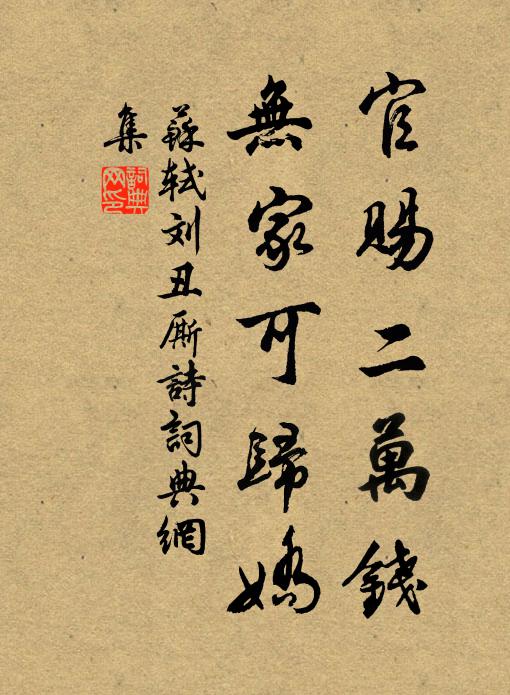 官賜二萬錢
無家可歸嬌
蘇軾刘丑厮詩詞典網
集
詞典網印